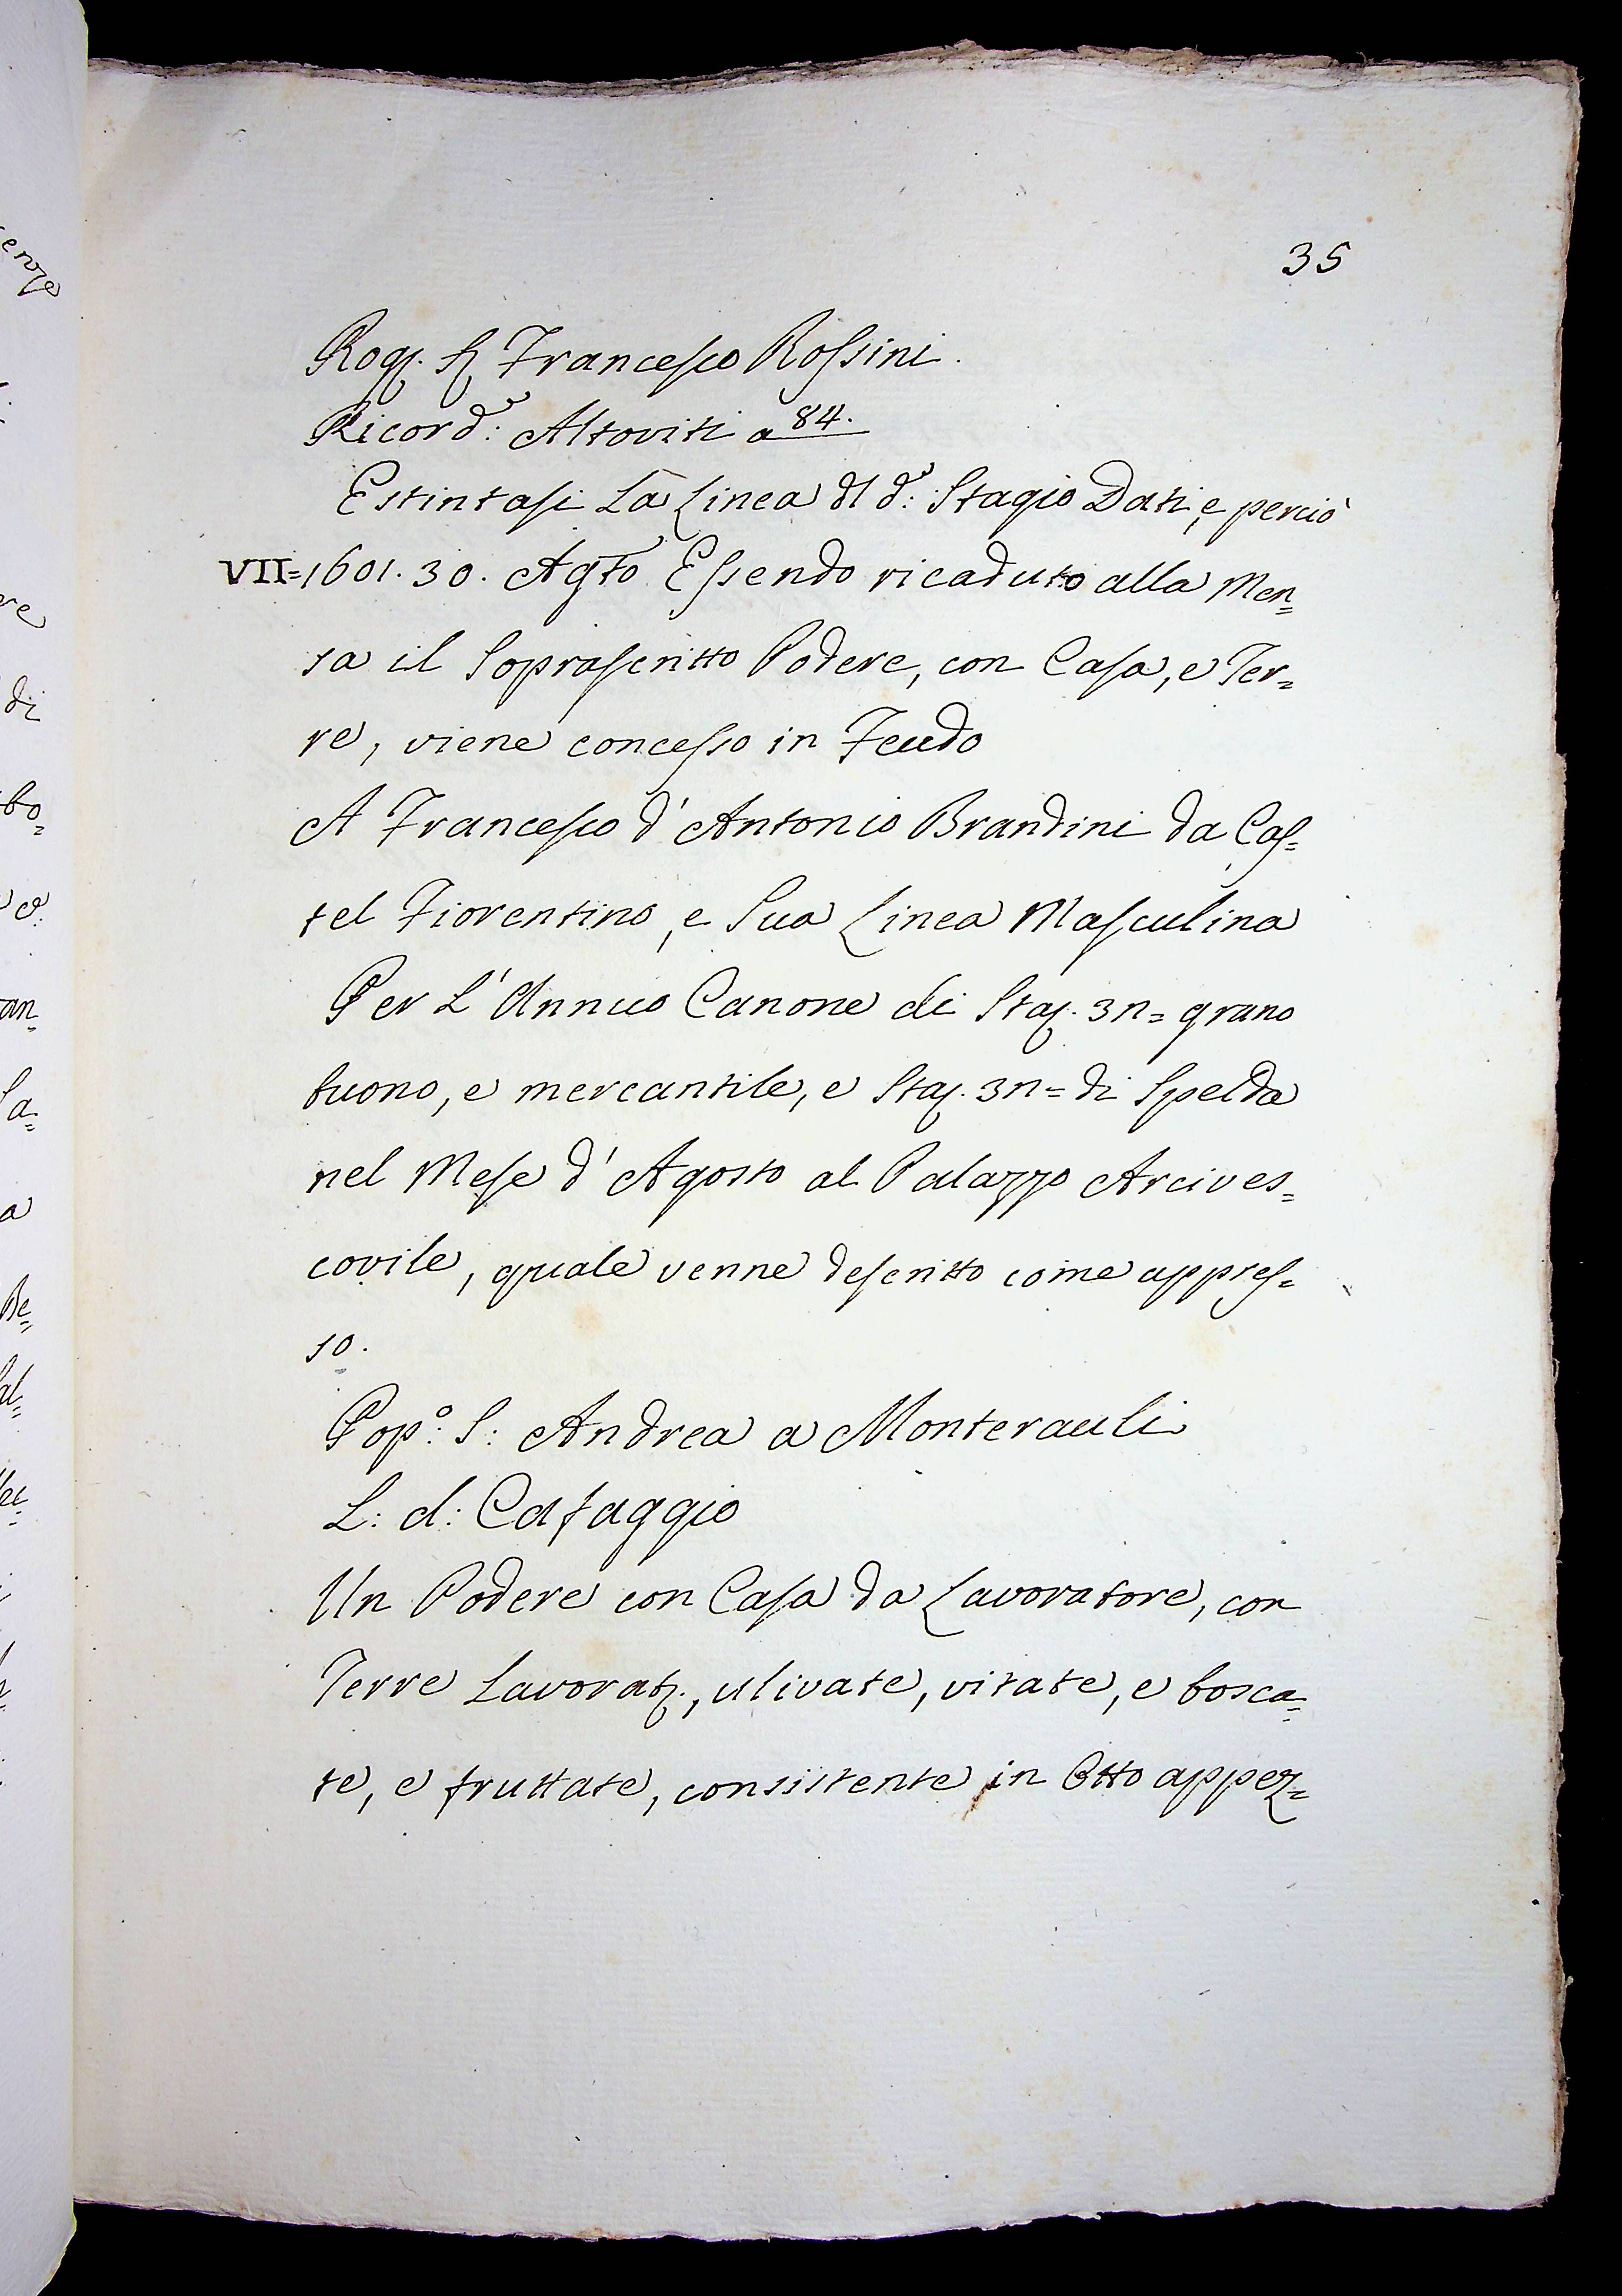 35
Rog. S. Francesco Rossini.
Ricord: Altoviti a 84.
Estintasi La Linea dl d: Stagio Dati, e perciò
VII=1601. 30. Agto Essendo ricaduto alla Men=
sa il Soprascritto Podere, con Casa, e Ter=
re, viene concesso in Feudo
A Francesco d'Antonio Brandini da Cas=
tel Fiorentino, e Sua Linea Masculina
Per L'Annuo Canone di Staj. 3n= grano
buono, e mercantile, e Staj. 3n= di Spelda
nel Mese d'Agosto al Palazzo Arcives=
covile, quale venne descritto come appres=
so.
Pop.º: S: Andrea a Monterauli
L: d: Cafaggio
Un Podere con Casa da Lavoratore, con
Terre Lavorat., ulivate, vitate, e bosca=
te, e fruttate, consistente in Otto appez=